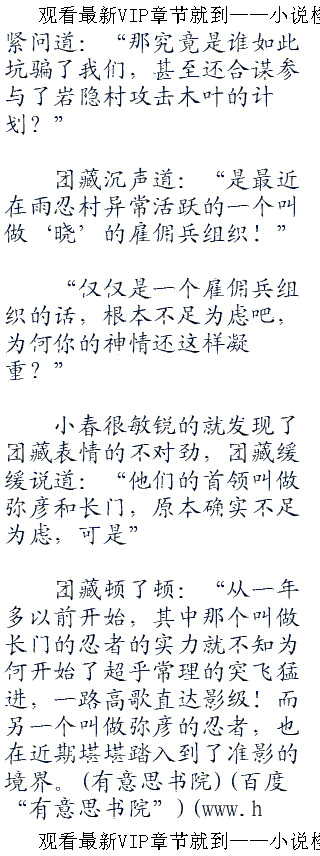 观看最新VIP章节就到——小说
紧问道：“那究竟是谁如此
坑骗了我们，甚至还合谋参
与了岩隐村攻击木叶的计
划？”
团藏沉声道：“是最近
在雨忍村异常活跃的一个叫
做‘晓’的雇佣兵组织！”
“仅仅是一个雇佣兵组
织的话，根本不足为虑吧，
为何你的神情还这样凝
重？”
小春很敏锐的就发现了
团藏表情的不对劲，团藏缓
缓说道：“他们的首领叫做
弥彦和长门，原本确实不足
为虑，可是”
团藏顿了顿：“从一年
多以前开始，其中那个叫做
长门的忍者的实力就不知为
何开始了超乎常理的突飞猛
进，一路高歌直达影级！而
另一个叫做弥彦的忍者，也
在近期堪堪踏入到了准影的
境界。(有意思书院)(百度
“有意思书院”)(www.h
观看最新VIP章节就到——小说